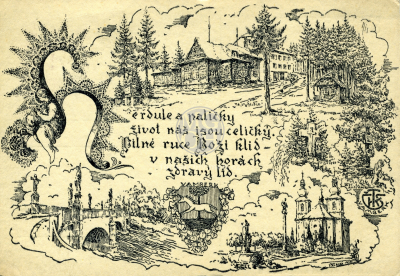 Herdule a paličky
život náš jsou celičký.
Pilné ruce Boží klid -
v našich horách
zdravý lid.
VAMBERK